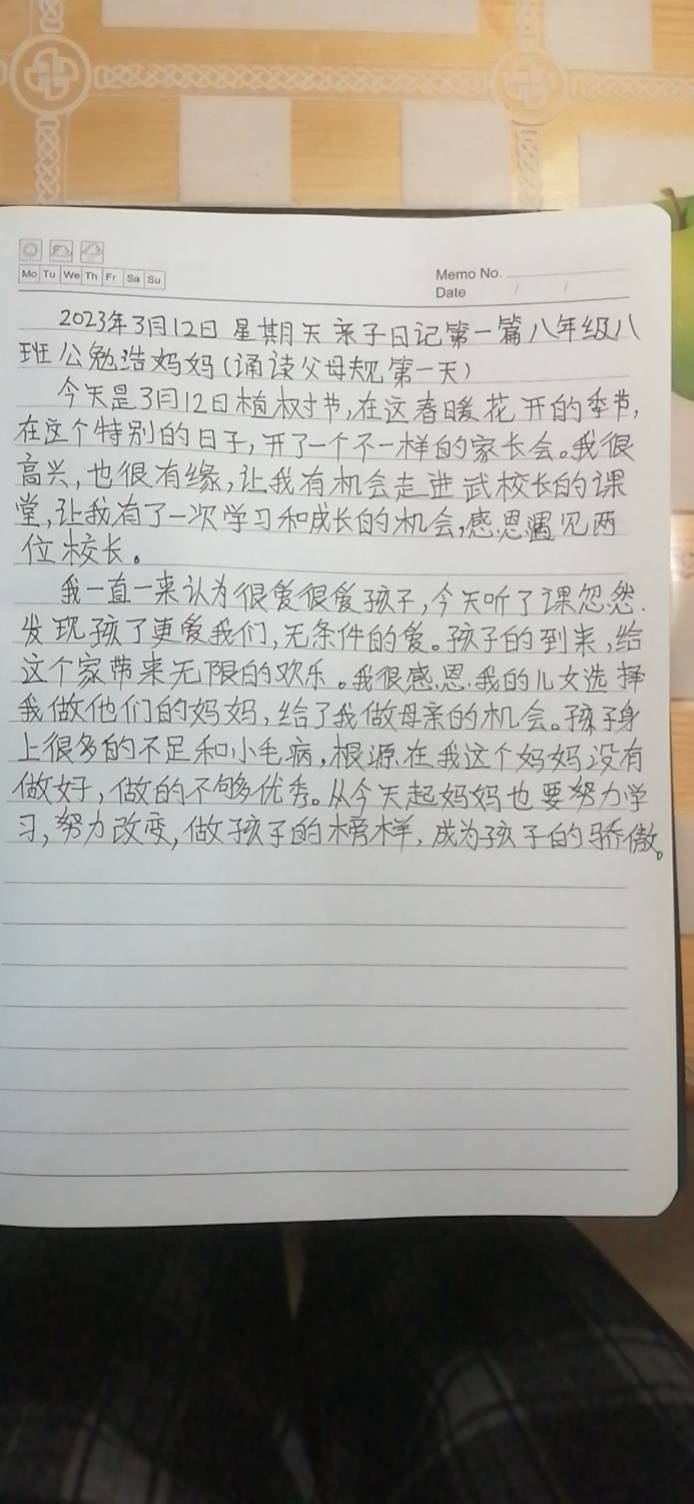 Mo Tu We Th Fr Sa Su
Memo No.
Date / /
2023年3月12日 星期天 亲子日记第一篇八年级八
班公勉浩妈妈(诵读父母规第一天)
今天是3月12日植树节,在这春暖花开的季节,
在这个特别的日子,开了一个不一样的家长会。我很
高兴,也很有缘,让我有机会走进武校长的课
堂,让我有了一次学习和成长的机会,感恩遇见两
位校长。
我一直一来认为很爱很爱孩子,今天听了课忽然
发现孩子更爱我们,无条件的爱。孩子的到来,给
这个家带来无限的欢乐。我很感恩.我的儿女选择
我做他们的妈妈,给了我做母亲的机会。孩子身
上很多的不足和小毛病,根源在我这个妈妈没有
做好,做的不够优秀。从今天起妈妈也要努力学
习,努力改变,做孩子的榜样,成为孩子的骄傲。